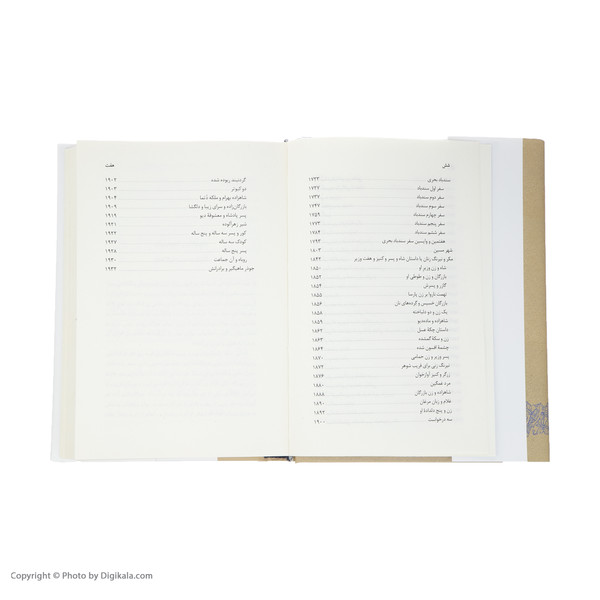 شش
سندباد بحری ۱۷۲۳
سفر اول سندباد ۱۷۲۷
سفر دوم سندباد ۱۷۳۷
سفر سوم سندباد ۱۷۴۷
سفر چهارم سندباد ۱۷۵۹
سفر پنجم سندباد ۱۷۷۳
سفر ششم سندباد ۱۷۸۴
هفتمین و واپسین سفر سندباد بحری ۱۷۹۳
شهر مسین ۱۸۰۳
مکر و نیرنگ زنان یا داستان شاه و پسر و کنیز و هفت وزیر ۱۸۴۲
شاه و زن وزیر او ۱۸۵۰
بازرگان و زن و طوطی او ۱۸۵۲
گازر و پسرش ۱۸۵۴
تهمت ناروا بر زن پارسا ۱۸۵۵
بازرگان خسیس و گرده‌های نان ۱۸۵۶
یک زن و دو دلباخته ۱۸۵۸
شاهزاده و ماده‌دیو ۱۸۵۹
داستان چکهٔ عسل ۱۸۶۲
زن و سکهٔ گمشده ۱۸۶۳
چشمهٔ افسون شده ۱۸۶۴
پسر وزیر و زن حمامی ۱۸۷۰
نیرنگ زنی برای فریب شوهر ۱۸۷۲
زرگر و کنیز آوازخوان ۱۸۷۶
مرد غمگین ۱۸۸۰
شاهزاده و زن بازرگان ۱۸۸۸
غلام و زبان مرغان ۱۸۹۰
زن و پنج دلدادهٔ او ۱۸۹۲
سه درخواست ۱۹۰۰
هفت
گردنبند ربوده شده ۱۹۰۲
دو کبوتر ۱۹۰۳
شاهزاده بهرام و ملکهٔ دَتما ۱۹۰۴
بازرگان‌زاده و سرای زیبا و دلگشا ۱۹۰۹
پسر پادشاه و معشوقهٔ دیو ۱۹۱۹
شیر زهرآلوده ۱۹۲۱
کور و پسر سه ساله و پنج ساله ۱۹۲۲
کودک سه ساله ۱۹۲۷
پسر پنج ساله ۱۹۲۸
روباه و آن جماعت ۱۹۳۰
جوذر ماهیگیر و برادرانش ۱۹۳۲
Copyright © Photo by Digikala.com